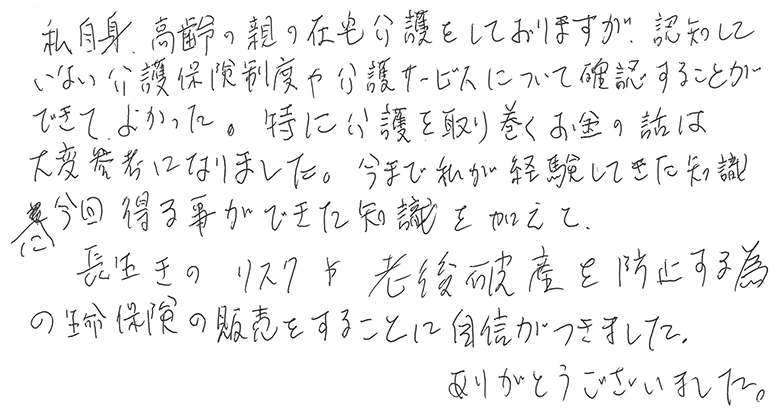 私自身、高齢の親の在宅介護をしておりますが、認知して
いない介護保険制度や介護サービスについて確認することが
できて、よかった。特に介護を取り巻くお金の話は
大変参考になりました。今まで私が経験してきた知識
に今回得る事ができた知識を加えて、
長生きのリスクや老後破産を防止する為
の生命保険の販売をすることに自信がつきました。
ありがとうございました。